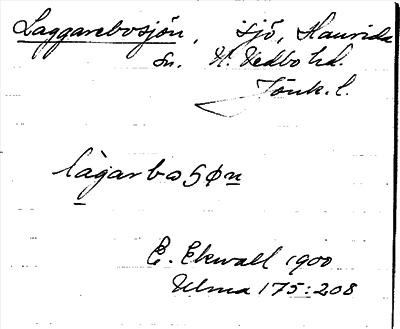 Laggarebosjön, sjö, Haurida
sn. N. Vedbo hd.
Jönk. l.
lagarboſøn
E. Ekwall 1900
Ulma 175:208